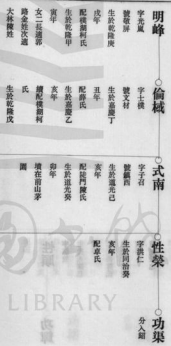 明峰
字光風
號敬屏
生於乾隆庚
戌年
配橫湖柯氏
生於乾隆甲
寅年
女二長適郭
路金姓次適
大林陳姓
倫棫
字士樸
號文材
生於嘉慶丁
丑年
配薛氏
生於嘉慶乙
亥年
續配橫湖柯
氏
生於乾隆戊
式南
字子召
號鎮西
生於道光己
亥年
配陡門陳氏
生於道光癸
卯年
墳在前山茅
園
性榮
字洪仁
生於同治癸
亥年
配卓氏
功渠
分入紹
LIBRARY